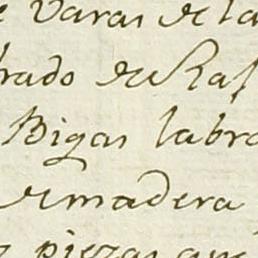 e Varas de la
brado de Ras
Bigas labra
de madera
piezas que